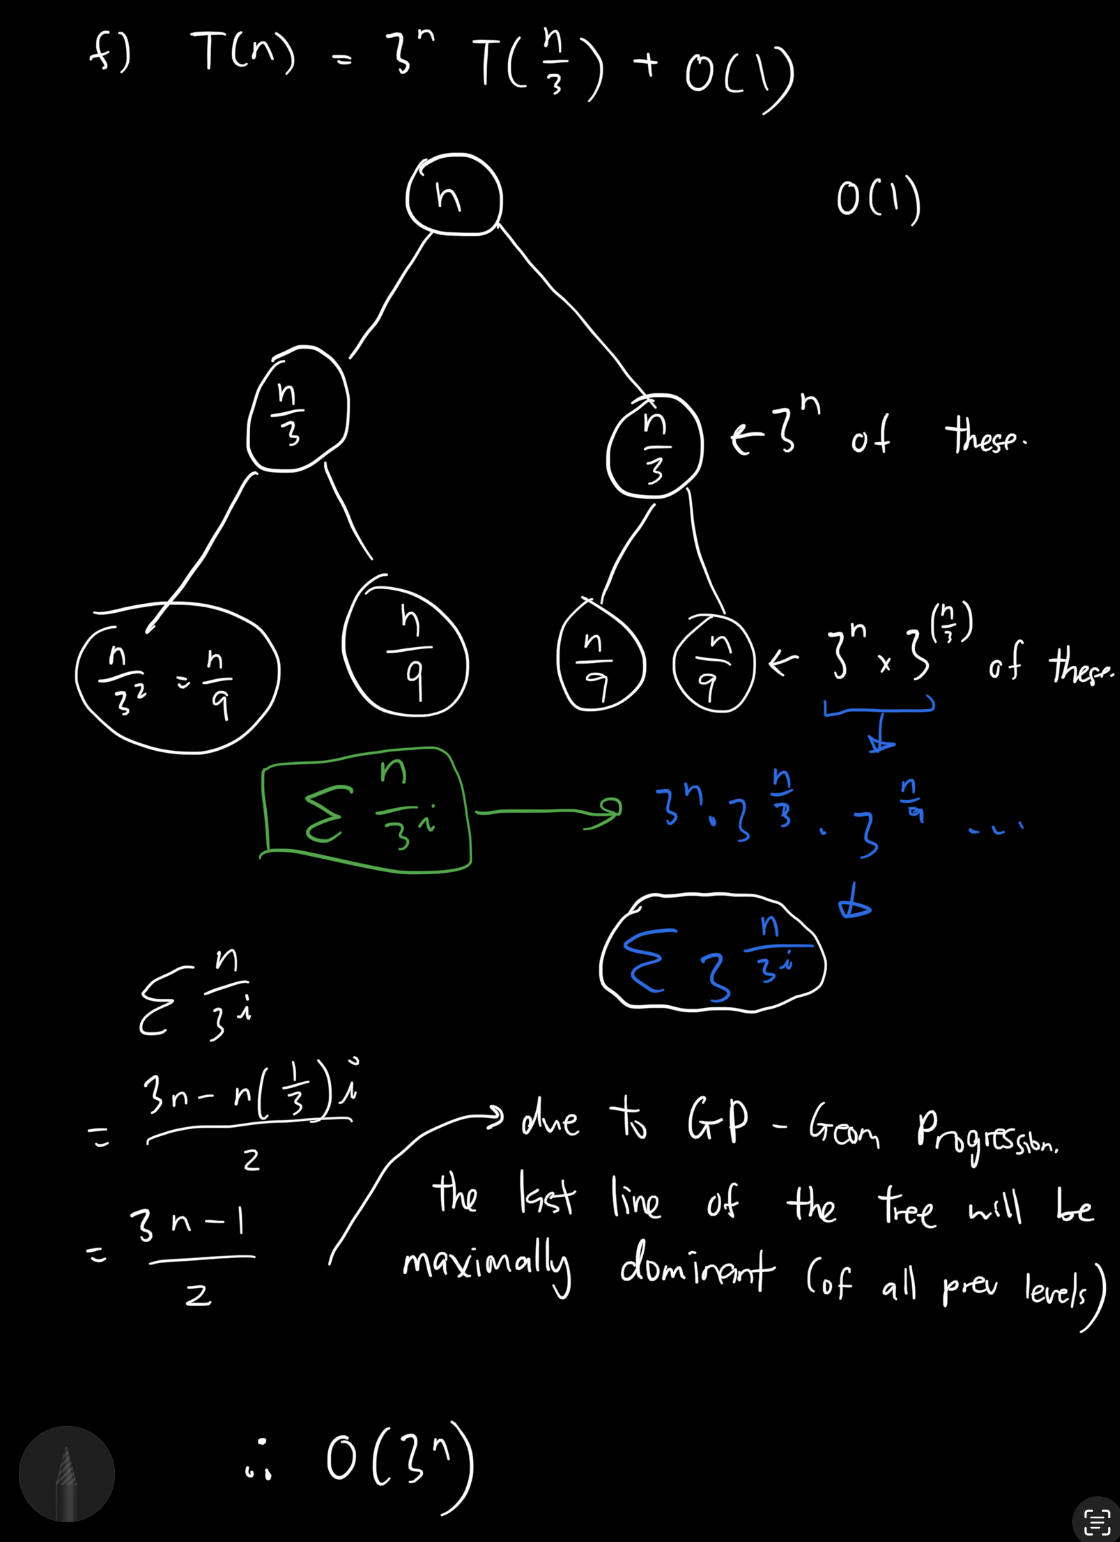 f) T(n) = 3^n T(n/3) + O(1)
n
O(1)
n/3
n/3 ← 3^n of these.
n/3^2 = n/9
n/9
n/9
n/9 ← 3^n × 3^(n/3) of these.
Σ n/3^i → 3^n · 3^(n/3) · 3^(n/9) ...
Σ 3^(n/3^i)
Σ n/3^i
= (3n - n(1/3)i)/2
→ due to GP - Geom Progression.
the last line of the tree will be
= (3n - 1)/2
maximally dominant (of all prev levels)
∴ O(3^n)